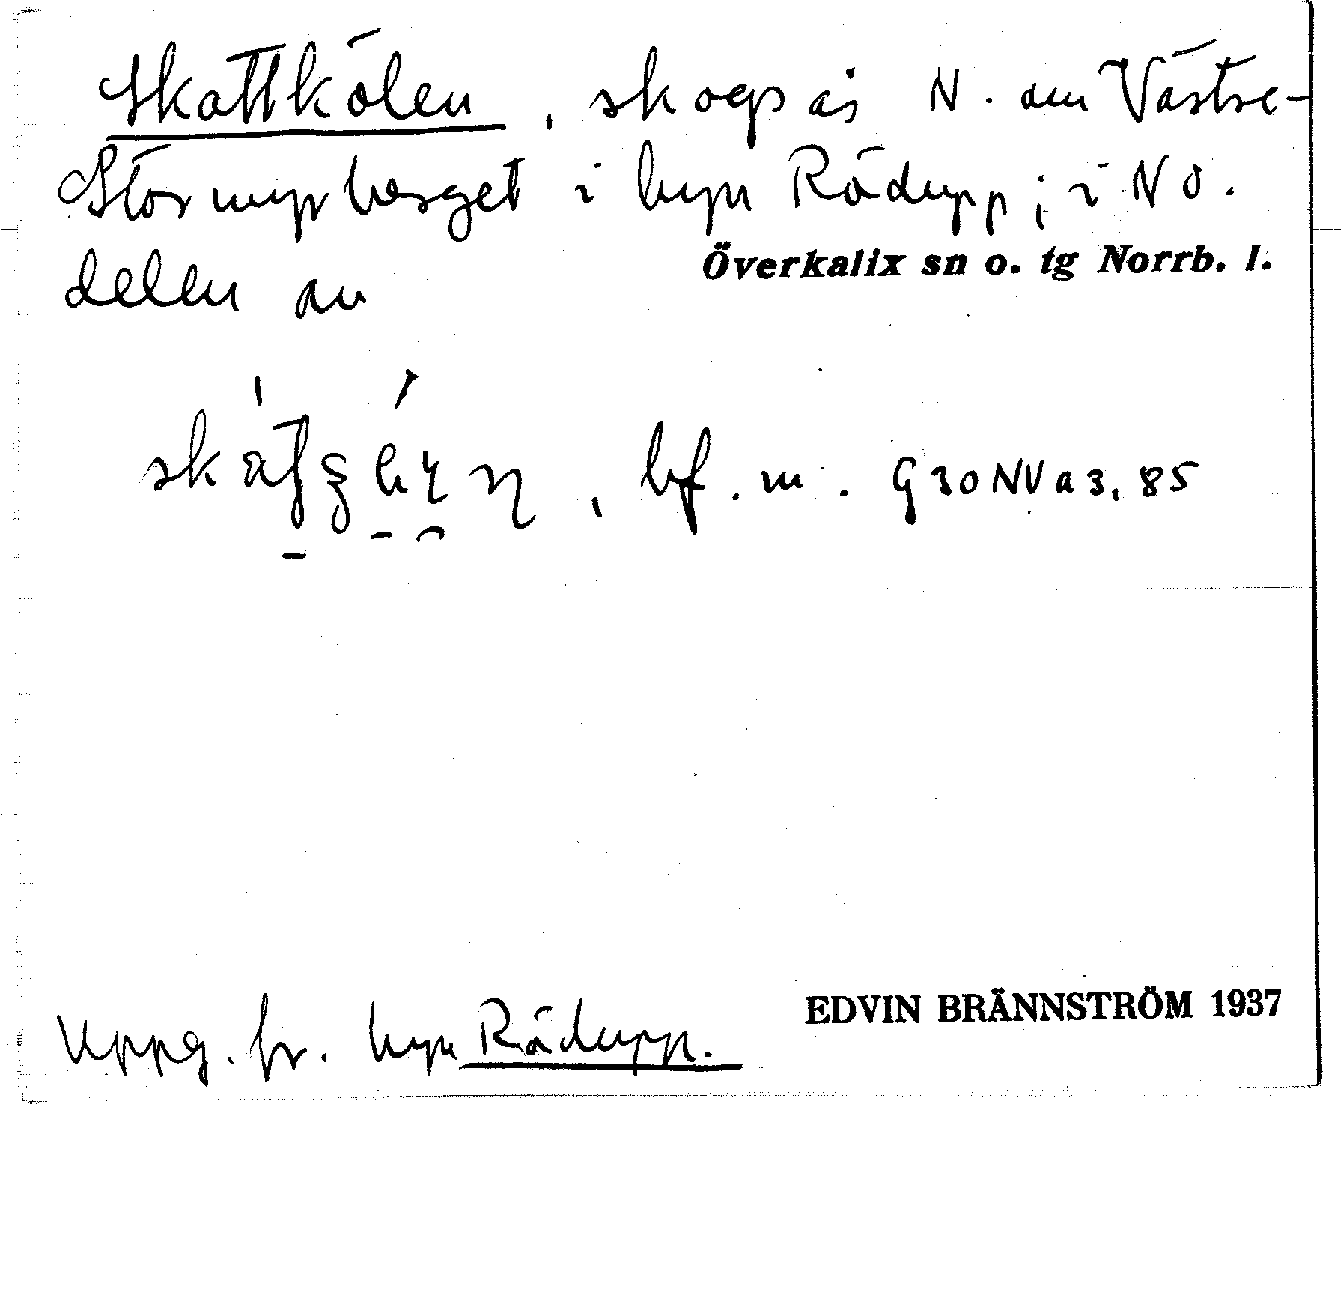 Skattkölen, skogsås N. om Västre-
Stormyrberget i byn Rödupp; i NO.
delen av
Överkalix sn o. tg Norrb. l.
bf. m. G30NVa3,85
Uppg. fr. byn Rödupp.
EDVIN BRÄNNSTRÖM 1937